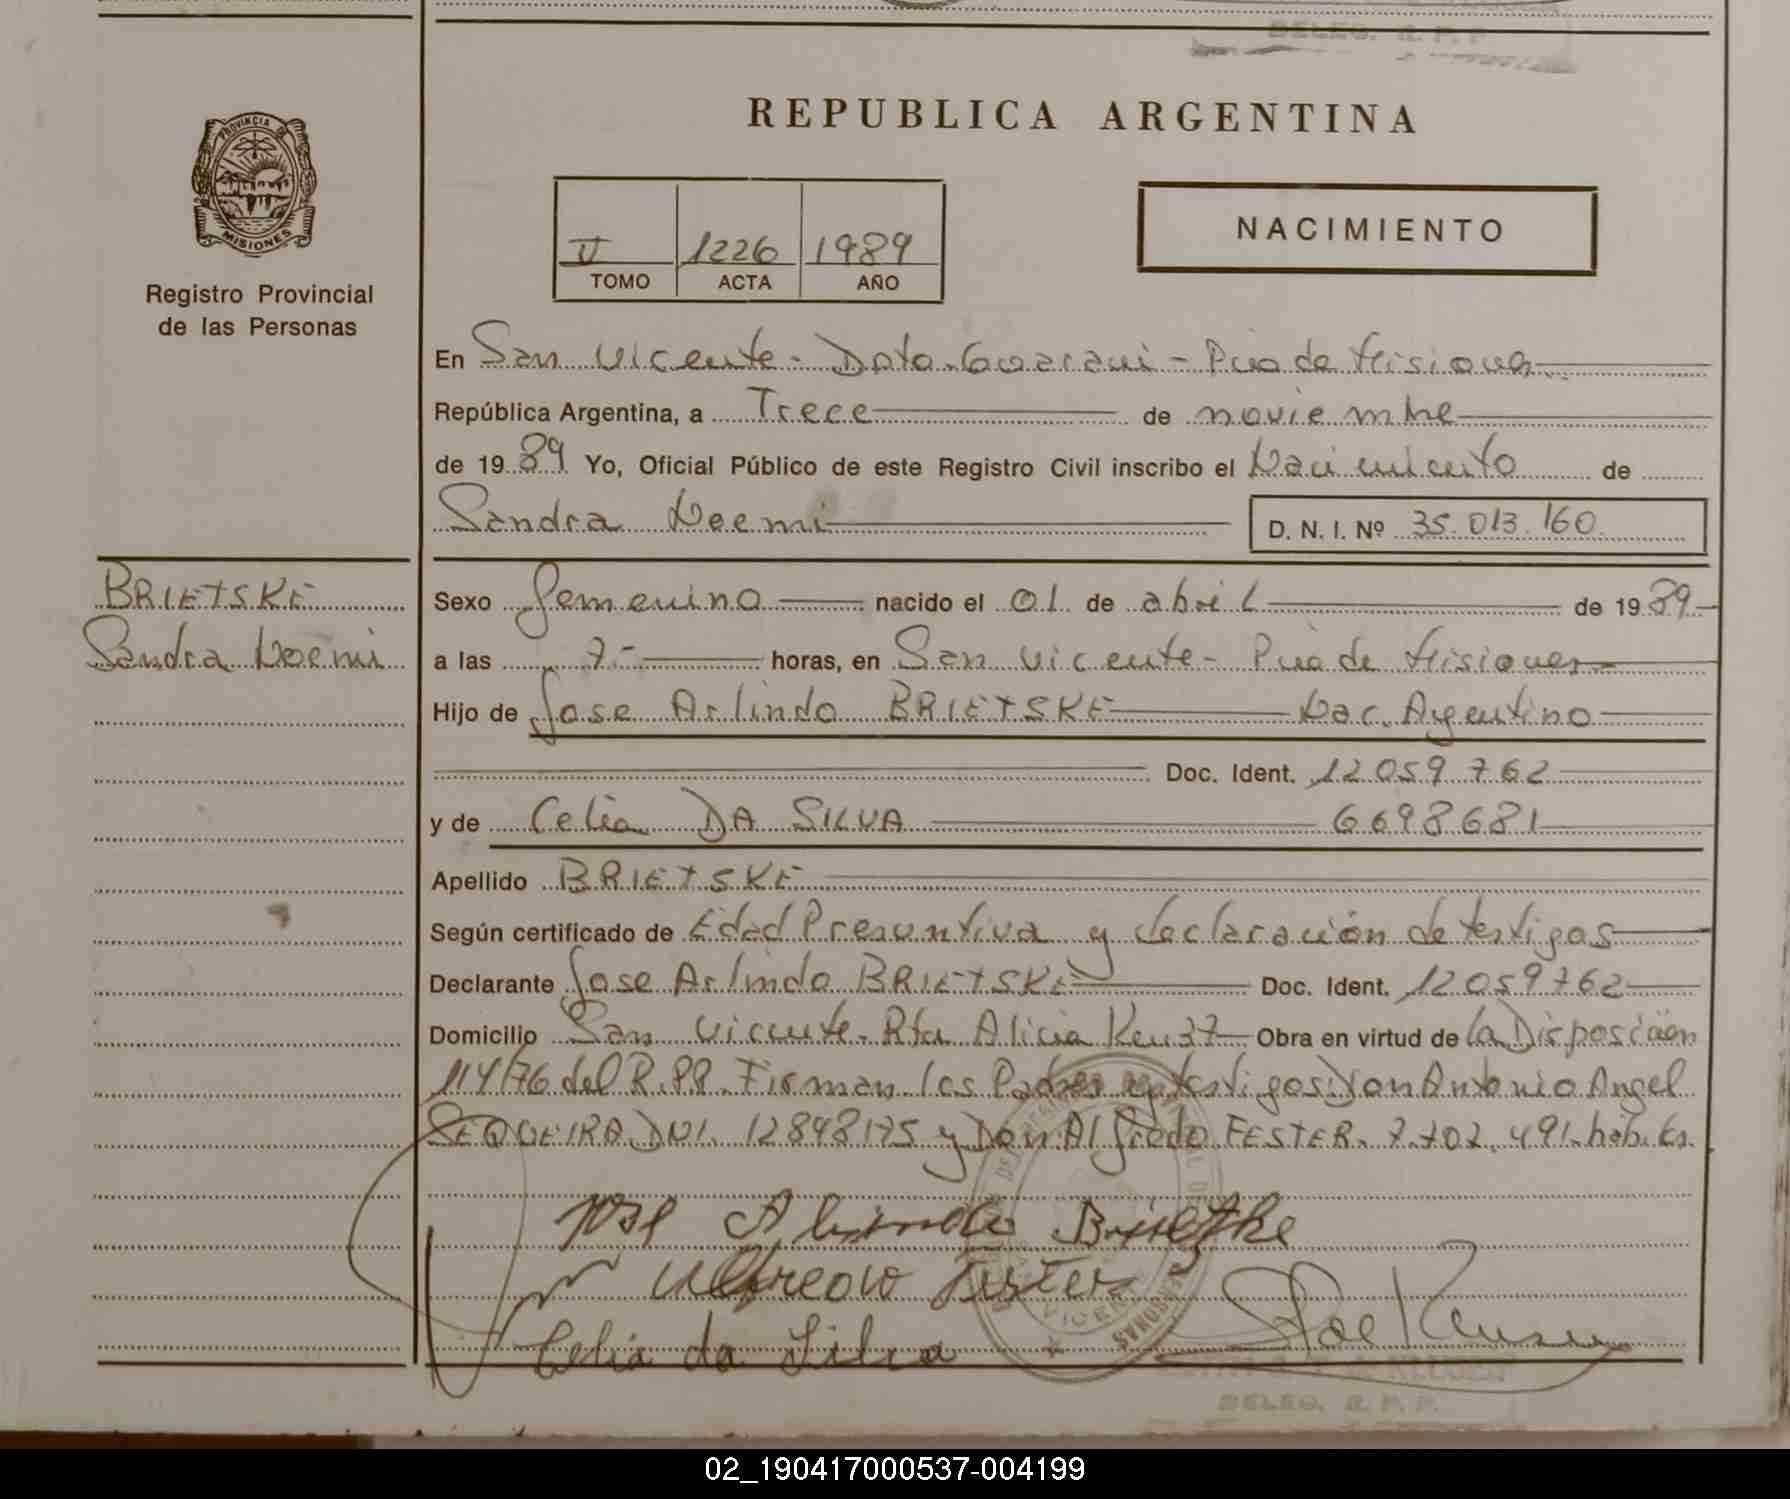 REPUBLICA ARGENTINA
PROVINCIA DE
MISIONES
Registro Provincial
de las Personas
II 1226 1989
TOMO ACTA AÑO
NACIMIENTO
En San Vicente - Dpto. Guarani - Pcia de Misiones
República Argentina, a Trece de noviembre
de 1989 Yo, Oficial Público de este Registro Civil inscribo el Nacimiento de
Sandra Noemi D. N. I. Nº 35.013.160
BRIETSKE
Sandra Noemi
Sexo femenino nacido el 01 de abril de 1989
a las 7.- horas, en San Vicente - Pcia de Misiones
Hijo de Jose Arlindo BRIETSKE Nac. Argentino
Doc. Ident. 12 059 762
y de Celia DA SILVA 6698681
Apellido BRIETSKE
Según certificado de Edad Presuntiva y declaración de testigos
Declarante Jose Arlindo BRIETSKE Doc. Ident. 12 059 762
Domicilio San Vicente. Rta Alicia Km 37 Obra en virtud de la Disposición
114/76 del R.P.P. Firman los Padres y testigos: Don Antonio Angel
SEQUEIRA DNI. 12898175 y Don Alfredo FESTER. 7.702.491. hab. es.
Jose Alindo Brietske
Alfredo Fester
Celia da Silva
DELEG. R. P. P.
02_190417000537-004199